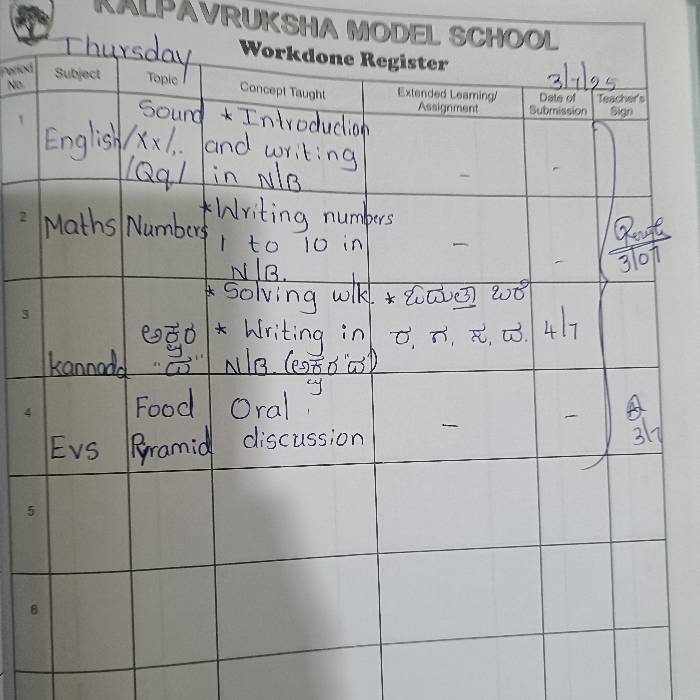 KALPAVRUKSHA MODEL SCHOOL
Thursday
Workdone Register
3/7/25
Period No.
Subject
Topic
Concept Taught
Extended Learning/
Assignment
Date of
Submission
Teacher's
Sign
1
English
Sound
/Xx/,
/Qq/
* Introduction
and writing
in N/B
-
-
2
Maths
Numbers
* Writing numbers
1 to 10 in
N/B.
-
-
3/07
3
Kannada
ಅಕ್ಷರ
"ಪ"
* Solving w/k.
* Writing in
N/B. (ಅಕ್ಷರ "ಪ")
* ಓದುತ್ತಾ ಬರೆ
ರ, ಗ, ಸ, ದ.
4/7
4
Evs
Food
Pyramid
Oral
discussion
-
-
3/7
5
6